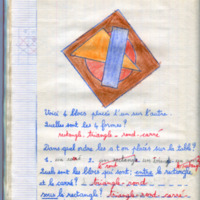 Voici 4 libres placés l'un sur l'autre.
Quelles sont les 4 formes?
rectangle. triangle - rond - carré
Dans quel ordre les a t on placés sur la table?
1. un carré 2. un rectangle un triangle
le rond
le rectangle
Quels sont les libres qui sont entre le rectangle
et le carré? - triangle - rond
sous le rectangle? triangle - rond - carré